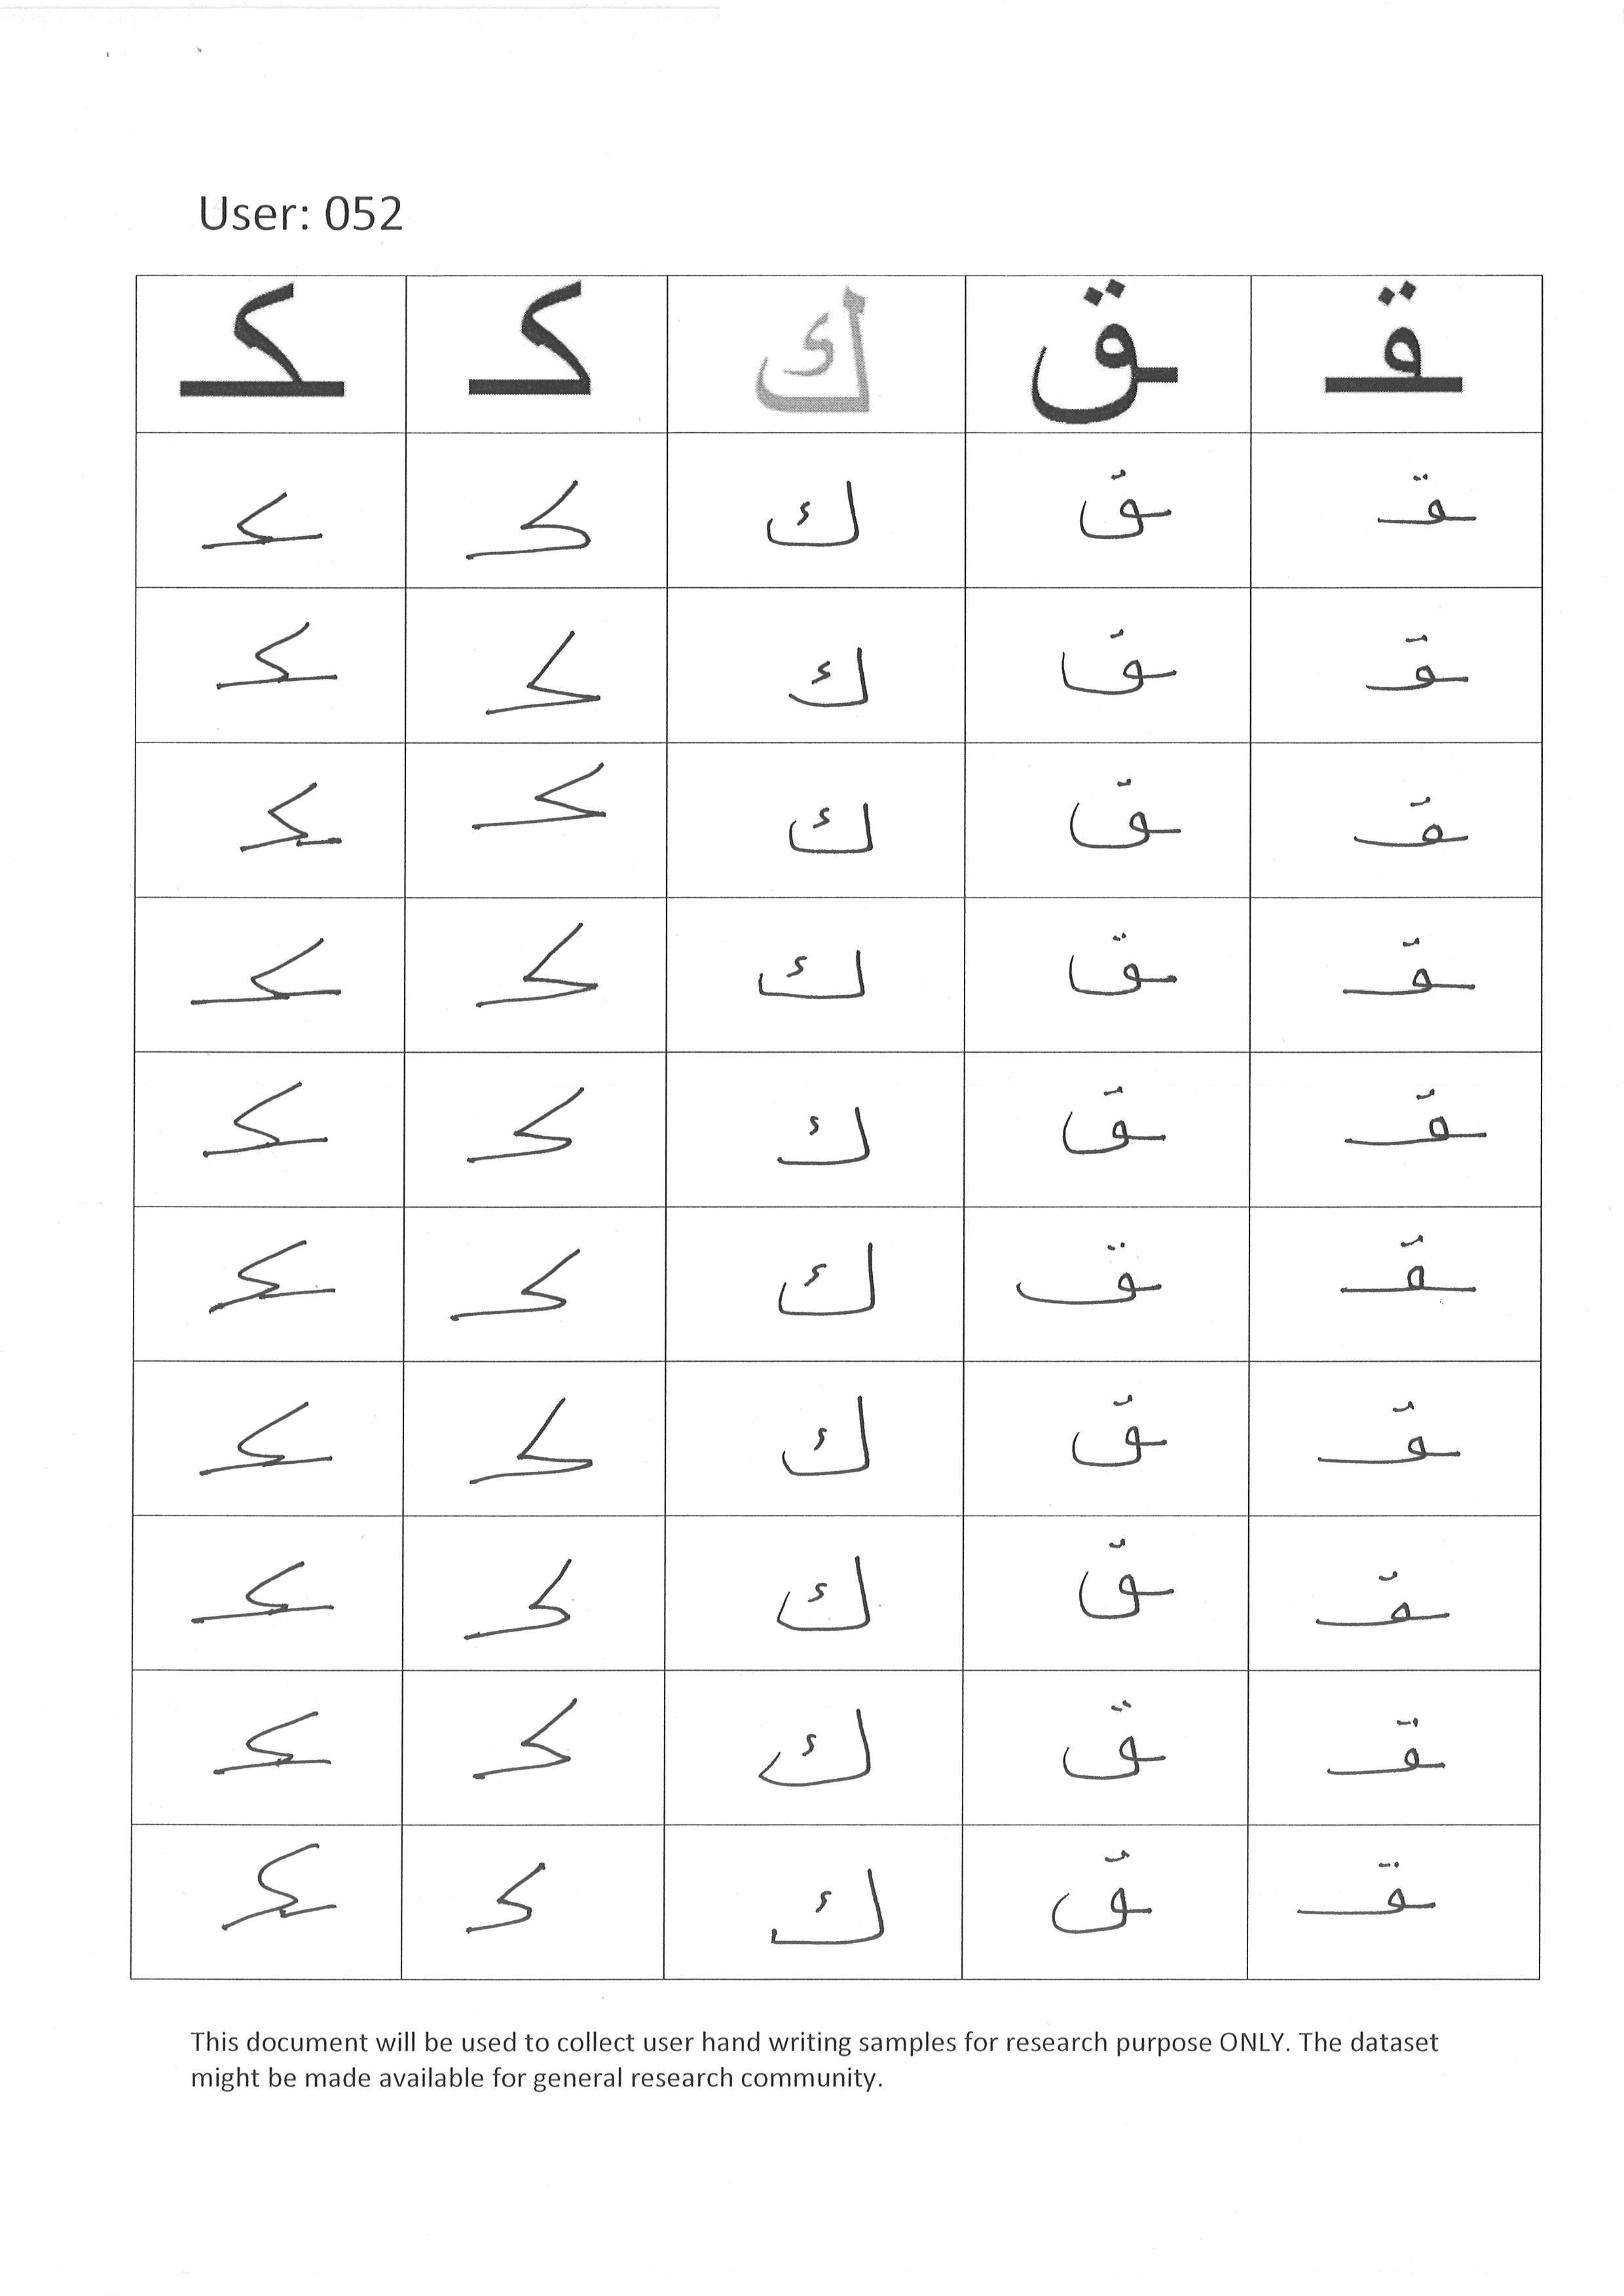 User: 052
ـقـ ـق ك كـ ـكـ
ـقـ ـق ك كـ ـكـ
ـقـ ـق ك كـ ـكـ
ـقـ ـق ك كـ ـكـ
ـقـ ـق ك كـ ـكـ
ـقـ ـق ك كـ ـكـ
ـقـ ـق ك كـ ـكـ
ـقـ ـق ك كـ ـكـ
ـقـ ـق ك كـ ـكـ
ـقـ ـق ك كـ ـكـ
ـقـ ـق ك كـ ـكـ
This document will be used to collect user hand writing samples for research purpose ONLY. The dataset
might be made available for general research community.